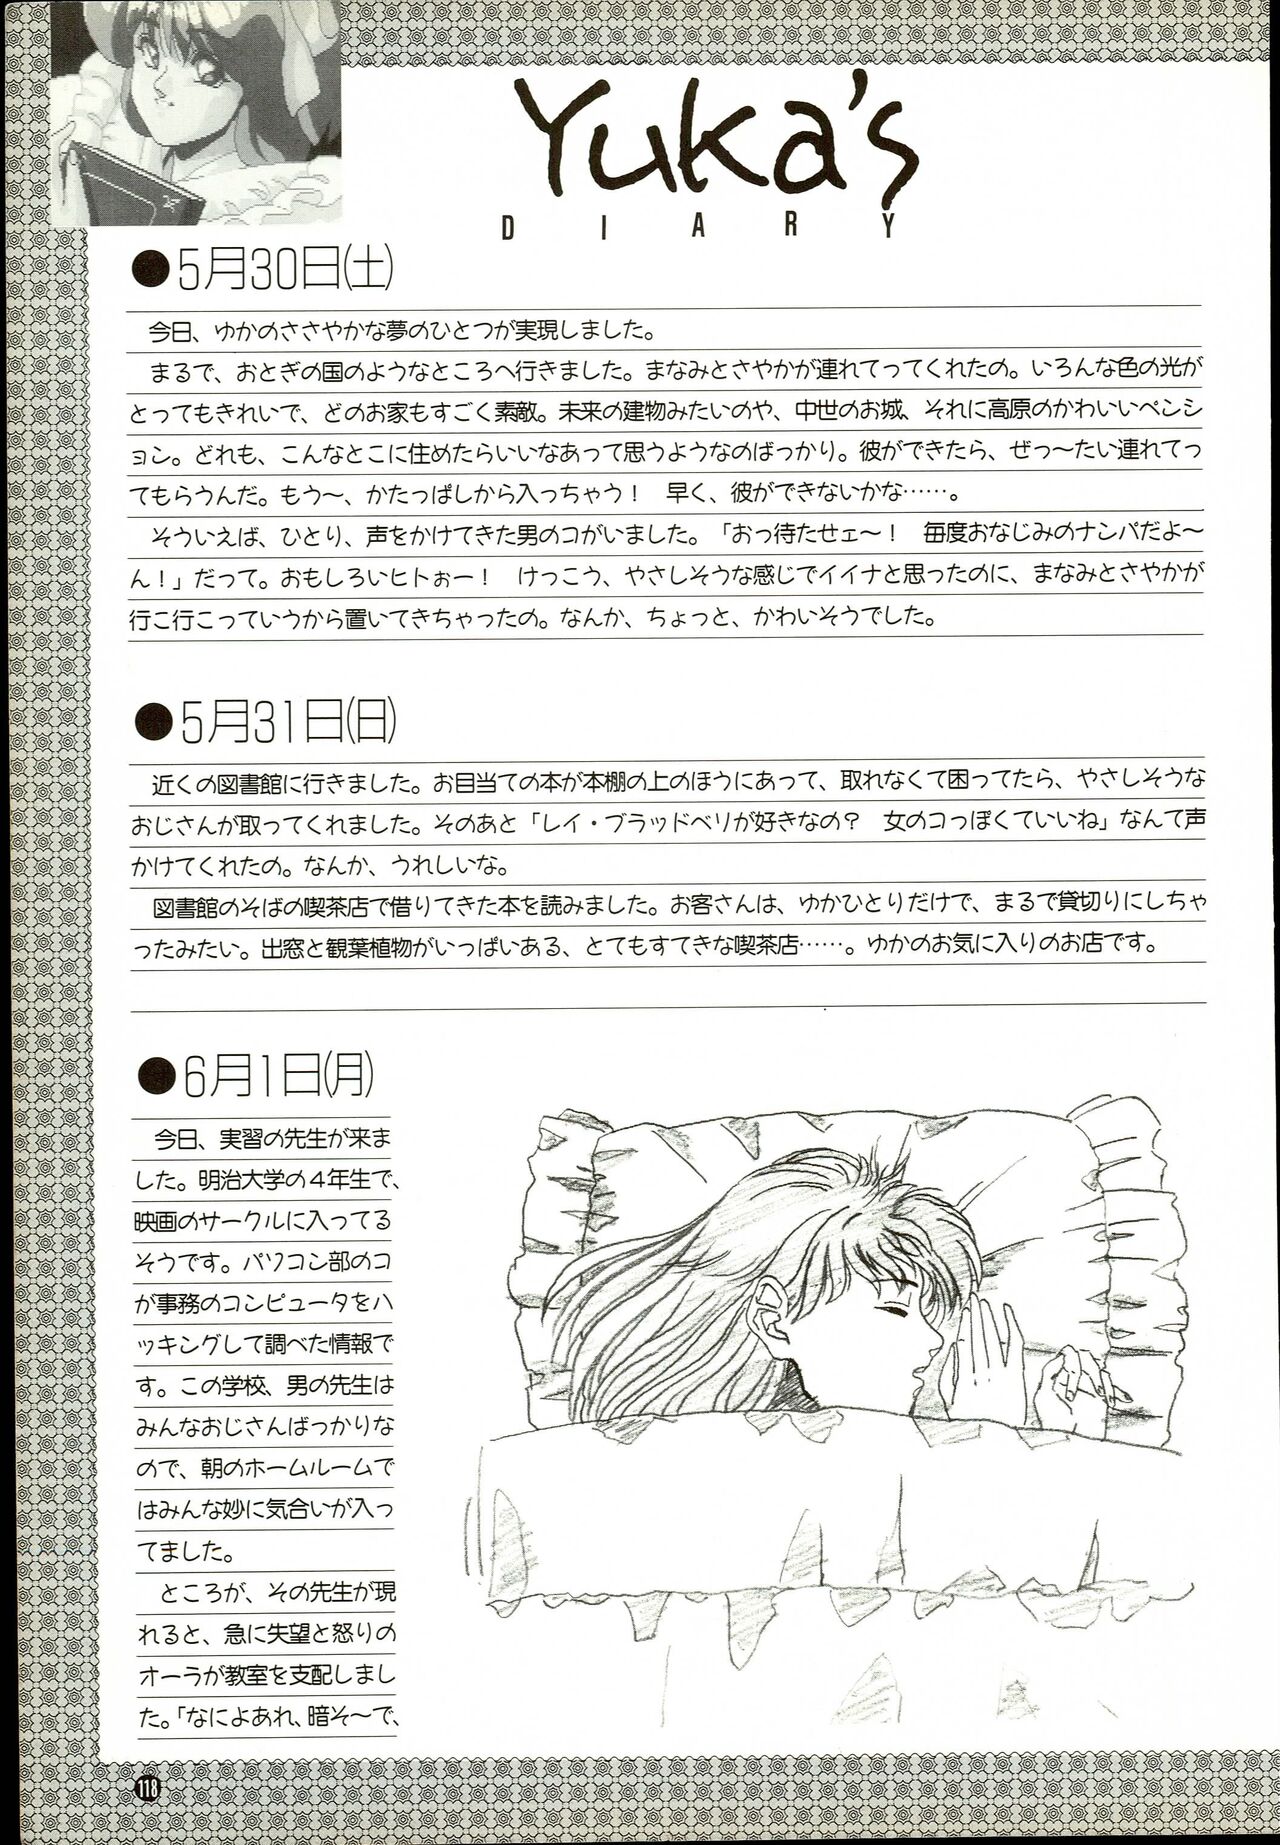 Yuka's
DIARY
●5月30日(土)
今日、ゆかのささやかな夢のひとつが実現しました。
まるで、おとぎの国のようなところへ行きました。まなみとさやかが連れてってくれたの。いろんな色の光が
とってもきれいで、どのお家もすごく素敵。未来の建物みたいのや、中世のお城、それに高原のかわいいペンシ
ョン。どれも、こんなとこに住めたらいいなあって思うようなのばっかり。彼ができたら、ぜっ〜たい連れてっ
てもらうんだ。もう〜、かたっぱしから入っちゃう！　早く、彼ができないかな……。
そういえば、ひとり、声をかけてきた男のコがいました。「おっ待たせェ〜！　毎度おなじみのナンパだよ〜
ん！」だって。おもしろいヒトぉー！　けっこう、やさしそうな感じでイイナと思ったのに、まなみとさやかが
行こ行こっていうから置いてきちゃったの。なんか、ちょっと、かわいそうでした。
●5月31日(日)
近くの図書館に行きました。お目当ての本が本棚の上のほうにあって、取れなくて困ってたら、やさしそうな
おじさんが取ってくれました。そのあと「レイ・ブラッドベリが好きなの？　女のコっぽくていいね」なんて声
かけてくれたの。なんか、うれしいな。
図書館のそばの喫茶店で借りてきた本を読みました。お客さんは、ゆかひとりだけで、まるで貸切りにしちゃ
ったみたい。出窓と観葉植物がいっぱいある、とてもすてきな喫茶店……。ゆかのお気に入りのお店です。
●6月1日(月)
今日、実習の先生が来ま
した。明治大学の4年生で、
映画のサークルに入ってる
そうです。パソコン部のコ
が事務のコンピュータをハ
ッキングして調べた情報で
す。この学校、男の先生は
みんなおじさんばっかりな
ので、朝のホームルームで
はみんな妙に気合いが入っ
てました。
ところが、その先生が現
れると、急に失望と怒りの
オーラが教室を支配しまし
た。「なによあれ、暗そ〜で、
118